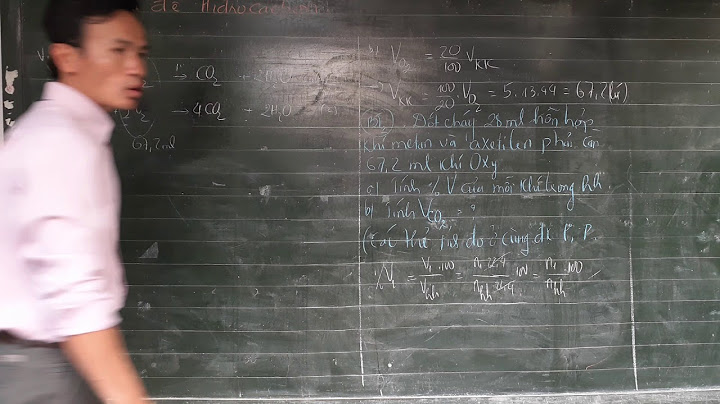 đề Hidrocacbon
CO₂ + 2H₂O
→ 4CO₂ + 2H₂O (2)
67,2 ml
b) V_O₂ = 20/100 V_KK
→ V_KK = 100/20 · V_O₂ = 5.13,44 = 67,2 (lít)
Đốt cháy 28 ml hỗn hợp
khí metan và axetilen phải cần
67,2 ml khí Oxy
a) Tính % V của mỗi khí trong hh.
b) Tính V_CO₂ = ?
(Các thể tích đo ở cùng đk t°, P.
%V₁ = V₁.100/V_hh = n₁.22,4/n_hh.22,4 .100 = n₁/n_hh .100